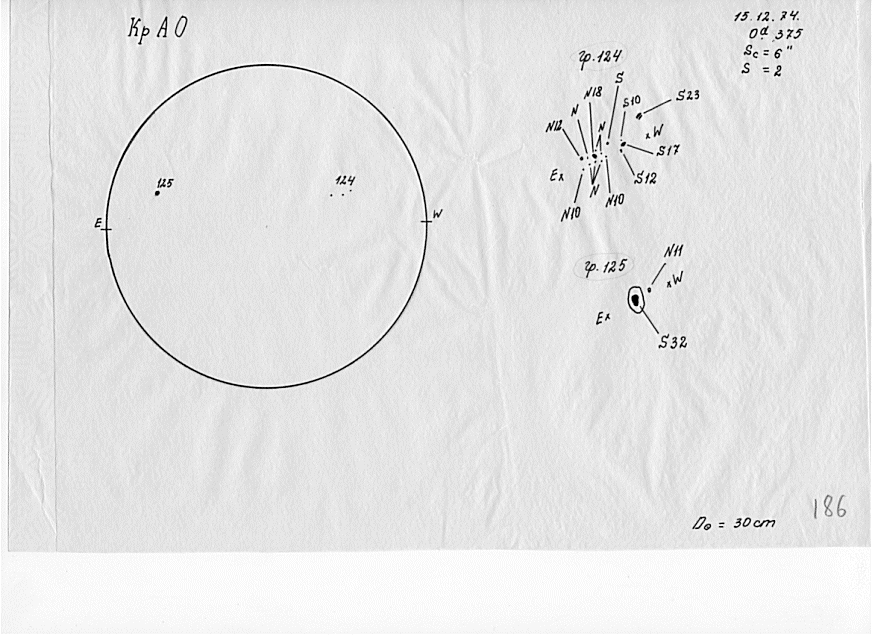 КрАО
15.12.74.
0d.375
Sc = 6"
S = 2
125
124
E
W
гр.124
S
N18
S10
S23
N
N12
N
W
S17
E
S12
N
N10
N10
гр.125
N11
W
E
S32
D⊙ = 30 cm
186